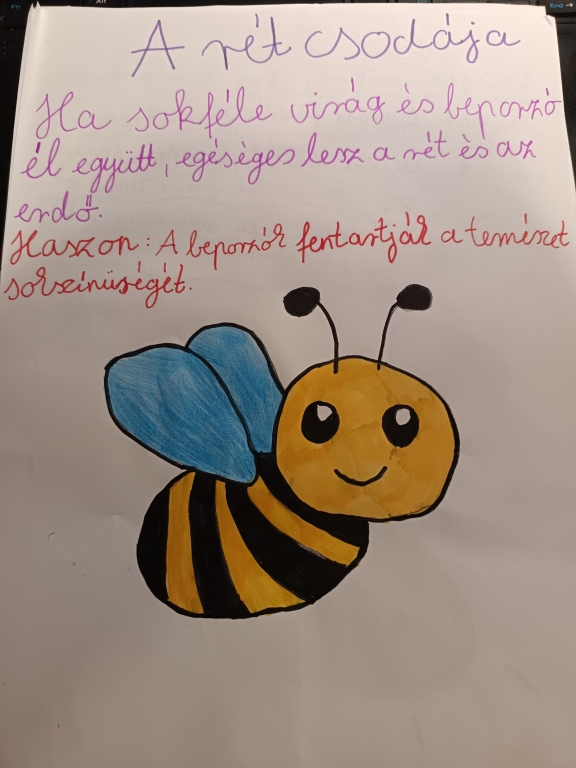 A rét csodája
Ha sokféle virág és beporzó
él együtt, egéséges lesz a rét és az
erdő.
Haszon: A beporzók fentartják a temészet
sokszínüségét.